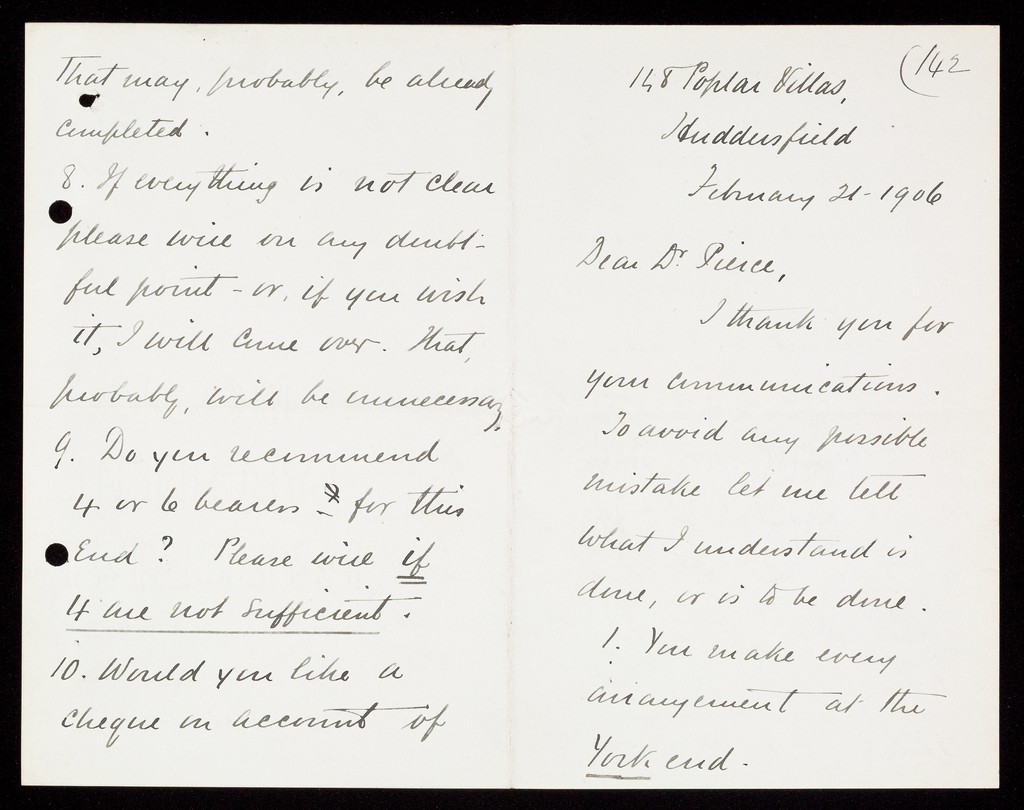 That may, probably, be already
completed.
8. If everything is not clear
please wire on any doubt-
ful point - or, if you wish
it, I will come over. That,
probably, will be unnecessary.
9. Do you recommend
4 or 6 bearers for this
End? Please wire if
4 are not sufficient.
10. Would you like a
cheque on account of
(142
148 Poplar Villas,
Huddersfield
February 21-1906
Dear Dr. Pierce,
I thank you for
your communications.
To avoid any possible
mistake let me tell
what I understand is
done, or is to be done.
1. You make every
arrangement at the
York end.